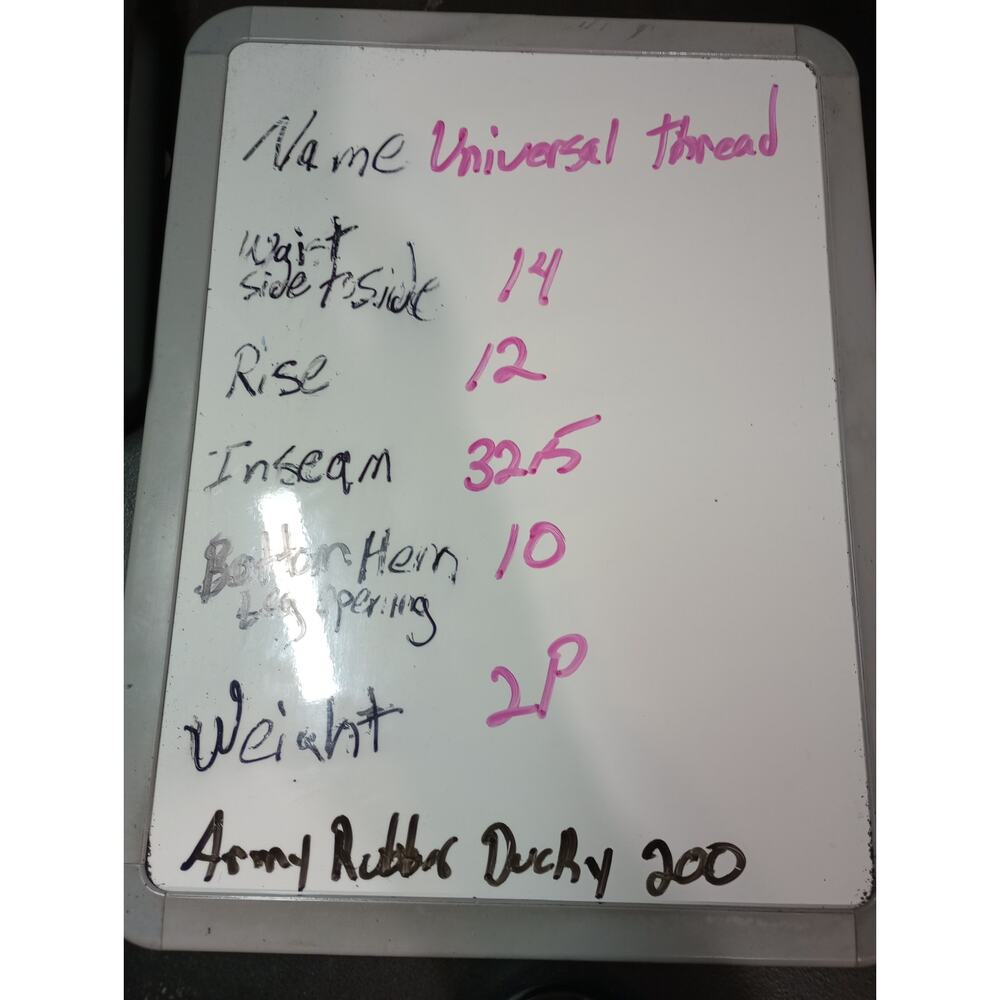 Name Universal thread
Waist
side to side 14
Rise 12
Inseam 32.5
Bottom Hem 10
Leg opening
Weight 2P
Army Rubber Ducky 200